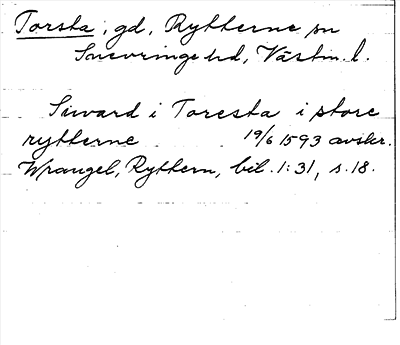 Torsta, gd, Rytterne sn
Snevringe hd, Västm. l.
Siward i Toresta i store
rytterne 19/6 1593 avskr.
Wrangel, Ryttern, bil. 1:31, s. 18.